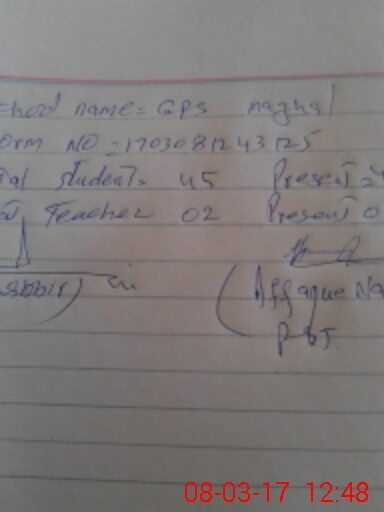 chool name = GPS maghal
orm NO = 170308124 3125
tal student = 45 Present =
Teacher 02 Present 0
sbbir) (Affaque Na
PST
08-03-17 12:48